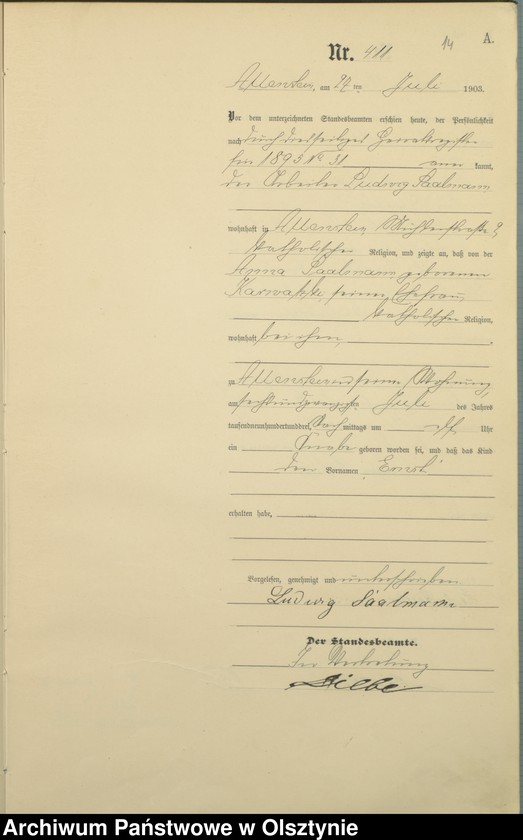 14 A.
Nr. 411
Allenstein, am 27 ten Juli 1903.
Vor dem unterzeichneten Standesbeamten erschien heute, der Persönlichkeit
nach durch diesseitiges Heiratsregister
für 1893 No 31 aner kannt,
der Arbeiter Ludwig Saalmann
wohnhaft in Allenstein,
katholischer Religion, und zeigte an, daß von der
Anna Saalmann geborenen
seiner Ehefrau,
katholischer Religion,
wohnhaft bei ihm,
zu Allenstein in seiner Wohnung,
am sechsundzwanzigsten Juli des Jahres
tausendneunhundertunddrei, Nachmittags um Uhr
ein Knabe geboren worden sei, und daß das Kind
den Vornamen Ernst
erhalten habe,
Vorgelesen, genehmigt und unterschrieben
Ludwig Saalmann
Der Standesbeamte.
In Vertretung
Archiwum Państwowe w Olsztynie